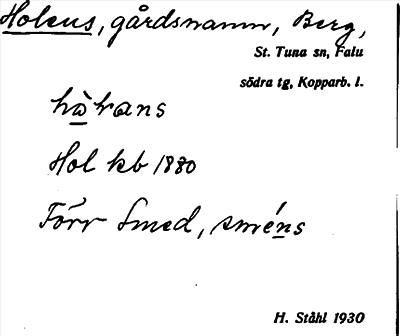 Holens, gårdsnamn, Berg,
St. Tuna sn, Falu
södra tg, Kopparb. l.
Hol kb 1880
Förr Smed, sméns
H. Ståhl 1930